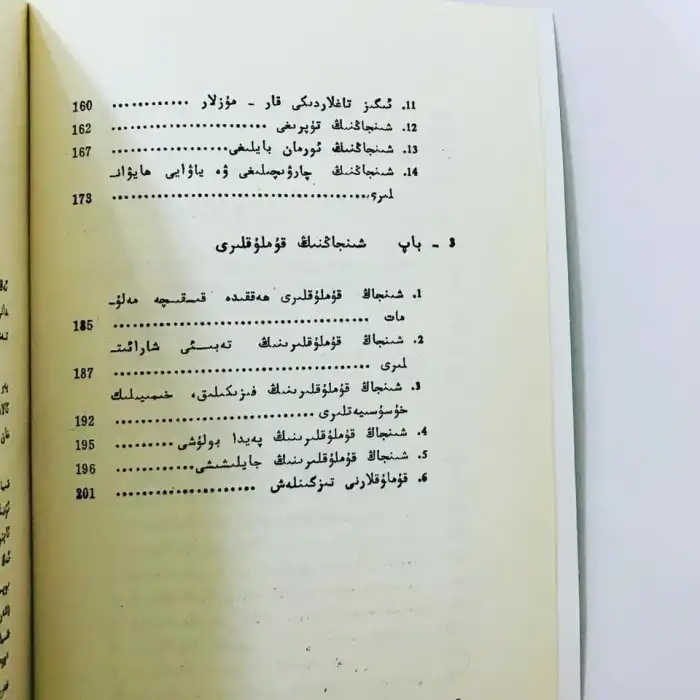 11. ئىگىز تاغلاردىكى قار - مۇزلار ............ 160
12. شىنجاڭنىڭ تۇپرىغى .................. 162
13. شىنجاڭنىڭ ئورمان بايلىغى.................. 167
14. شىنجاڭنىڭ چارۋىچىلىغى ۋە ياۋايى ھايۋانـ
لىرى .................................. 173
3 - باپ شىنجاڭنىڭ قۇملۇقلىرى
1. شىنجاڭ قۇملۇقلىرى ھەققىدە قىسقىچە مەلۇـ
مات .................................. 185
2. شىنجاڭ قۇملۇقلىرىنىڭ تەبىئى شارائىتـ
لىرى .................................. 187
3. شىنجاڭ قۇملۇقلىرىنىڭ فىزىكىلىق، خىمىيىلىك
خۇسۇسىيەتلىرى .......................... 192
4. شىنجاڭ قۇملۇقلىرىنىڭ پەيدا بولۇشى .......... 195
5. شىنجاڭ قۇملۇقلىرىنىڭ جايلىشىشى............ 196
6. قۇملۇقلارنى تىزگىنلەش .................. 201